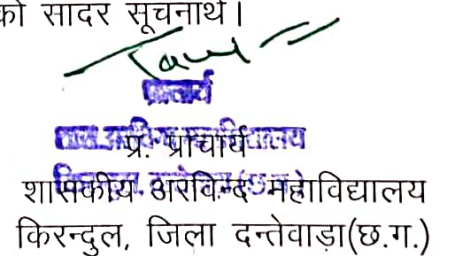 को सादर सूचनार्थ।
प्राचार्य
प्र. प्राचार्य
शासकीय अरविन्द महाविद्यालय
किरन्दुल, जिला दन्तेवाड़ा(छ.ग.)